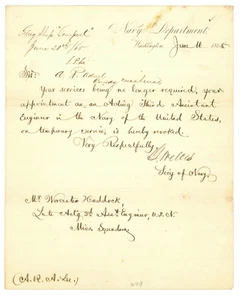 Flag Ship "Tempest"
June 20th /65
Navy Department
Washington June 1865
Sir:
Your services being no longer required, your
appointment as an Acting Third Assistant
Engineer in the Navy of the United States,
on temporary service, is hereby revoked.
Very Respectfully
G Welles
Secy of Navy.
Mr. Haddock,
Late Actg. 3d Asst Engineer, U.S.N.
Miss Squadron